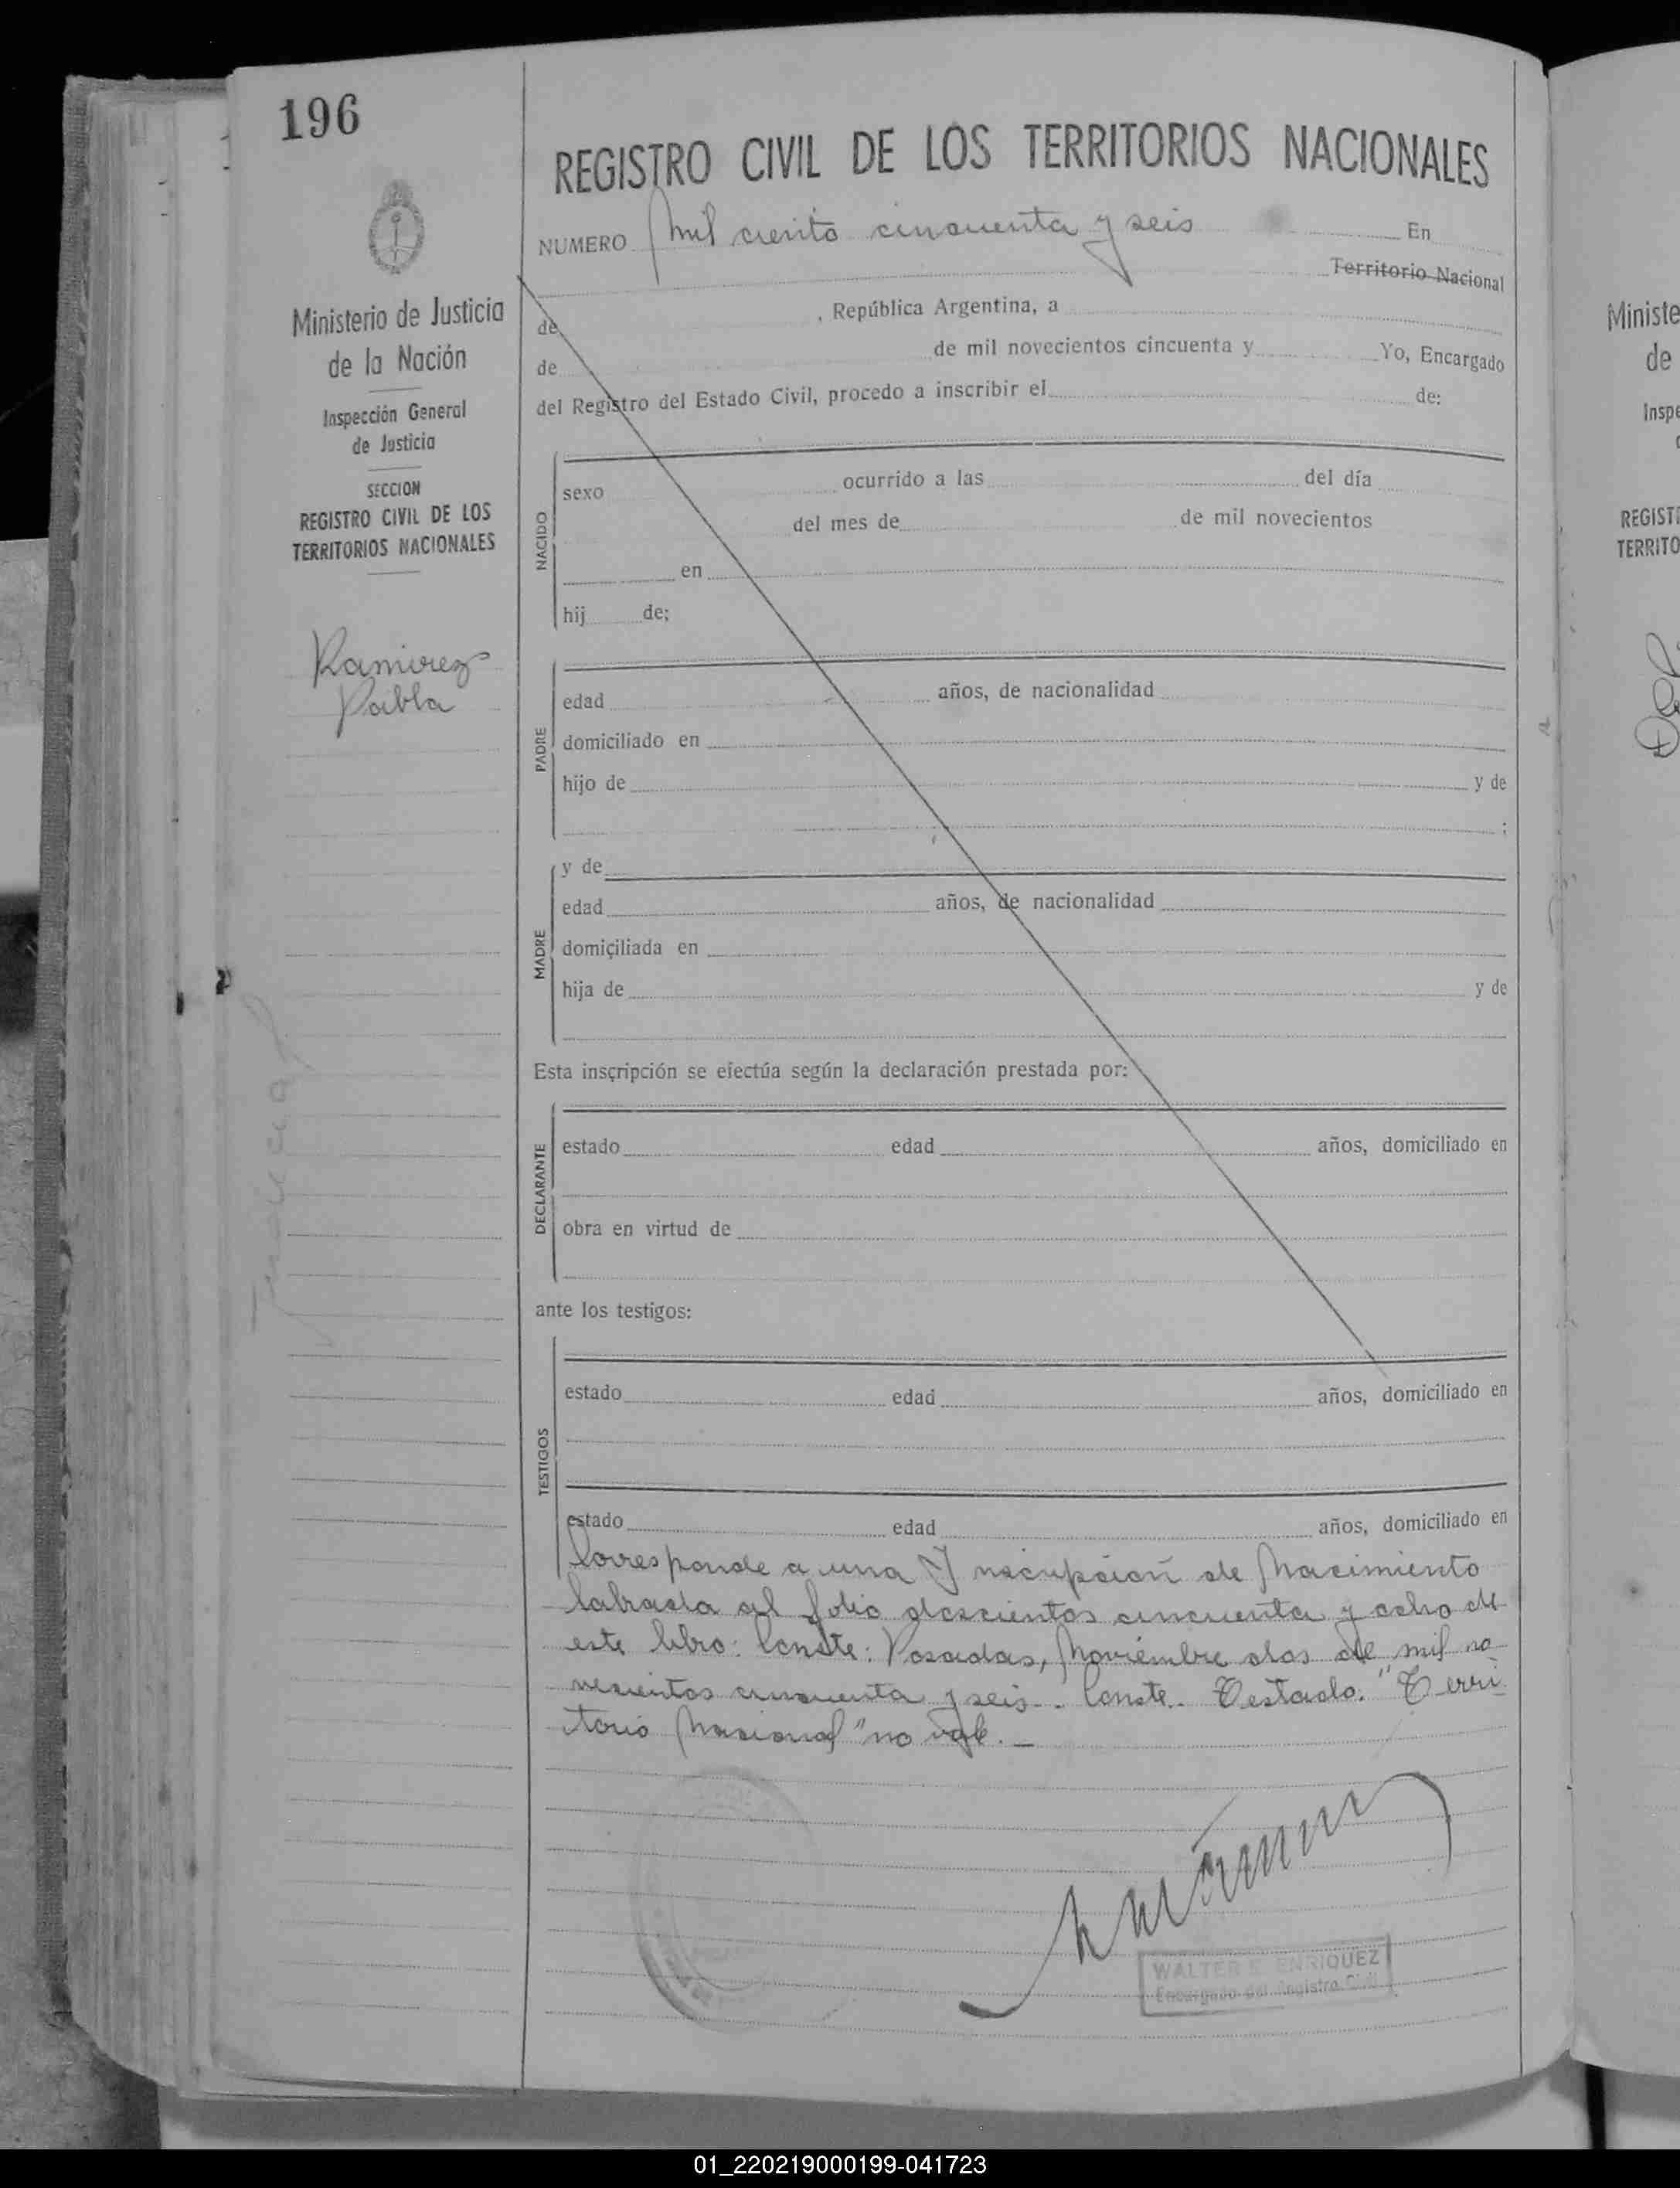 196
REGISTRO CIVIL DE LOS TERRITORIOS NACIONALES
NUMERO Mil ciento cincuenta y seis En
Territorio Nacional
de , República Argentina, a
de de mil novecientos cincuenta y Yo, Encargado
del Registro del Estado Civil, procedo a inscribir el de:
Ministerio de Justicia
de la Nación
Inspección General
de Justicia
SECCION
REGISTRO CIVIL DE LOS
TERRITORIOS NACIONALES
Ramirez
Pabla
NACIDO
sexo ocurrido a las del día
del mes de de mil novecientos
en
hij de;
PADRE
edad años, de nacionalidad
domiciliado en
hijo de y de
;
MADRE
y de
edad años, de nacionalidad
domiciliada en
hija de y de
Esta inscripción se efectúa según la declaración prestada por:
DECLARANTE
estado edad años, domiciliado en
obra en virtud de
ante los testigos:
TESTIGOS
estado edad años, domiciliado en
estado edad años, domiciliado en
Corresponde a una Inscripción de Nacimiento
labrada al folio doscientos cincuenta y ocho de
este libro: Conste: Posadas, Noviembre dos de mil no
vecientos cincuenta y seis.. Conste.. Testado: "Terri
torio Nacional" no vale. _
WALTER E. ENRIQUEZ
Encargado del Registro Civil
Ministe
de
Inspe
REGISTR
TERRITO
01_220219000199-041723